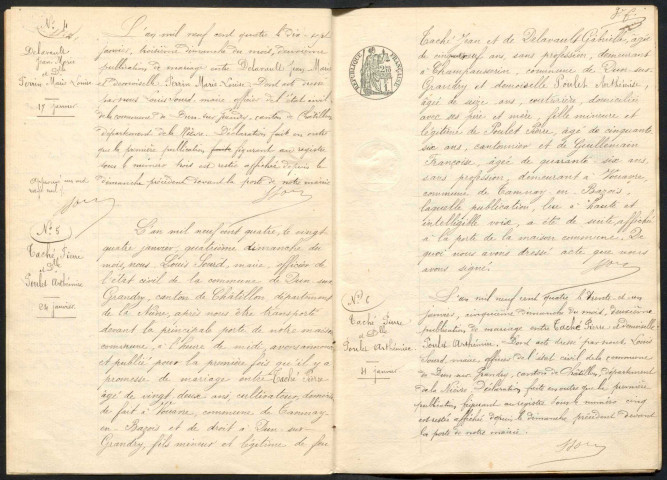 N° 4
Delavault
Jean Marie
et
Perrin Marie Louise
17 janvier
L'an mil neuf cent quatre le dix-sept
janvier, troisième dimanche du mois, deuxième
publication de mariage entre Delavault Jean Marie
et demoiselle Perrin Marie Louise. Dont acte dressé
par nous Louis Sourd, maire officier de l'état civil
de la commune de Dun-sur-Grandry, canton de Châtillon
département de la Nièvre. Déclaration fait en outre
que la première publication figurant au registre
sous le numéro trois est restée affichée depuis le
dimanche précédent devant la porte de notre mairie
mot
nul
N° 5
Taché Pierre
et Dlle
Poulet Anthémise
24 janvier
L'an mil neuf cent quatre, le vingt
quatre janvier, quatrième dimanche du
mois, nous Louis Sourd, maire, officier de
l'état civil de la commune de Dun-sur-
Grandry, canton de Châtillon, département
de la Nièvre, après nous être transporté
devant la principale porte de notre maison
commune, à l'heure de midi, avons annoncé
et publié pour la première fois qu'il y a
promesse de mariage entre Taché Pierre
âgé de vingt deux ans, cultivateur, demeurant
de fait à Vouavre, commune de Tamnay-
en-Bazois et de droit à Dun-sur-
Grandry, fils mineur et légitime de feu
RÉPUBLIQUE FRANÇAISE
Taché Jean et de Delavault Gabrielle, âgée
de neuf ans, sans profession, demeurant
à Champausserin, commune de Dun-sur-
Grandry et demoiselle Poulet Anthémise,
âgée de seize ans, couturière, domiciliée
avec ses père et mère, fille mineure et
légitime de Poulet Pierre, âgé de cinquante
six ans, cantonnier et de Guillemain
Françoise, âgée de quarante-six ans,
sans profession, demeurant à Vouavre,
commune de Tamnay-en-Bazois,
laquelle publication, lue à haute et
intelligible voix, a été de suite affichée
à la porte de la maison commune. De
quoi nous avons dressé acte que nous
avons signé.
N° 6
Taché Pierre
et Dlle
Poulet Anthémise
31 janvier
L'an mil neuf cent quatre, le trente et un
janvier, cinquième dimanche du mois, deuxième
publication de mariage entre Taché Pierre et demoiselle
Poulet Anthémise. Dont acte dressé par nous Louis
Sourd, maire, officier de l'état civil de la commune
de Dun-sur-Grandry, canton de Châtillon, département
de la Nièvre. Déclaration faite en outre que la première
publication figurant au registre sous le numéro cinq
est restée affichée depuis le dimanche précédent devant
la porte de notre mairie.